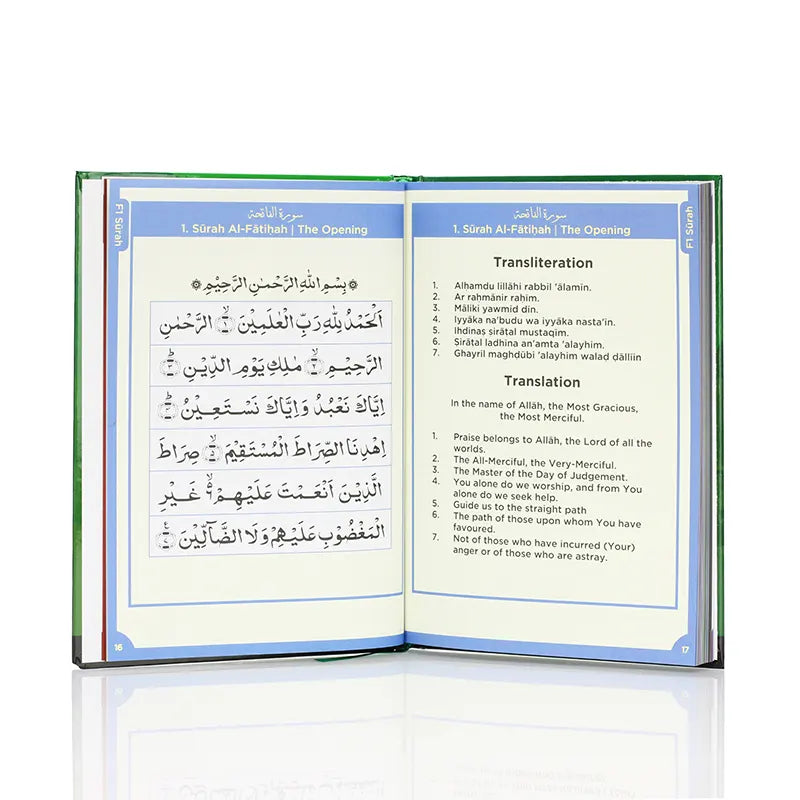 F1 Sūrah
سورة الفاتحة
1. Sūrah Al-Fātiḥah | The Opening
بِسْمِ اللهِ الرَّحْمٰنِ الرَّحِيْمِ
اَلْحَمْدُ لِلّٰهِ رَبِّ الْعٰلَمِيْنَ ۙ‏﴿١﴾ الرَّحْمٰنِ
الرَّحِيْمِ ۙ‏﴿٢﴾ مٰلِكِ يَوْمِ الدِّيْنِ ؕ‏﴿٣﴾
اِيَّاكَ نَعْبُدُ وَاِيَّاكَ نَسْتَعِيْنُ ؕ‏﴿٤﴾
اِهْدِنَا الصِّرَاطَ الْمُسْتَقِيْمَ ۙ‏﴿٥﴾ صِرَاطَ
الَّذِيْنَ اَنْعَمْتَ عَلَيْهِمْ ۙ۹ غَيْرِ
الْمَغْضُوْبِ عَلَيْهِمْ وَلَا الضَّآلِّيْنَ
16
سورة الفاتحة
1. Sūrah Al-Fātiḥah | The Opening
F1 Sūrah
Transliteration
1. Alhamdu lillāhi rabbil ‘ālamin.
2. Ar rahmānir rahim.
3. Māliki yawmid din.
4. Iyyāka na'budu wa iyyāka nasta'in.
5. Ihdinas sirātal mustaqim.
6. Sirātal ladhina an'amta ‘alayhim.
7. Ghayril maghdūbi ‘alayhim walad dālliin
Translation
In the name of Allāh, the Most Gracious,
the Most Merciful.
1. Praise belongs to Allāh, the Lord of all the
worlds.
2. The All-Merciful, the Very-Merciful.
3. The Master of the Day of Judgement.
4. You alone do we worship, and from You
alone do we seek help.
5. Guide us to the straight path
6. The path of those upon whom You have
favoured.
7. Not of those who have incurred (Your)
anger or of those who are astray.
17